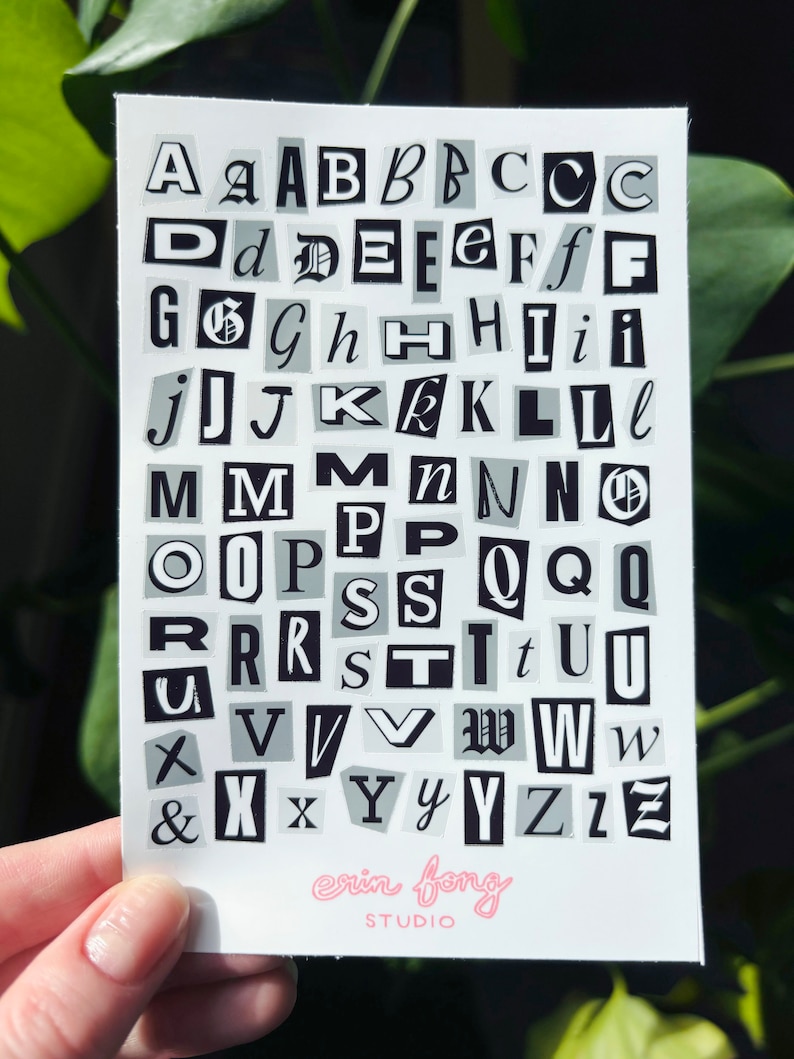 A A A B B B C C C
D d D E E e F f F
G G G h H H I i i
j J J K k K L L l
M M M n N N O
O O P P P Q Q Q
R R R S S S T T t U U
U V V V W W w
X X X x Y y Y Z Z Z
&
erin fong
STUDIO